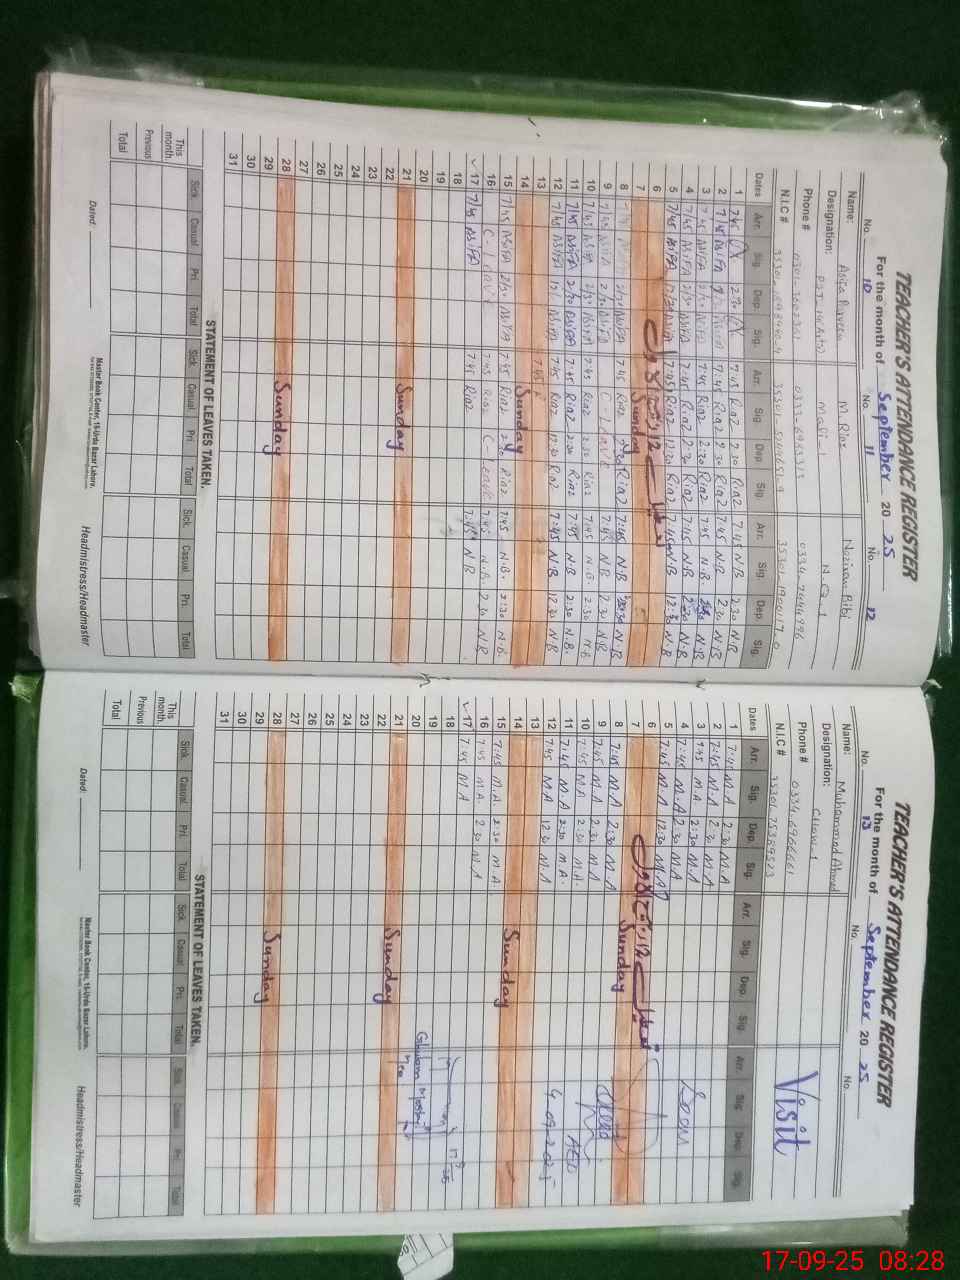 TEACHER'S ATTENDANCE REGISTER
For the month of September 20 25
No. 10 No. 11 No. 12
Name: M. Riaz
Designation: Mali-1 N.Q-1
Phone #
N.I.C #
Dates Arr. Sig. Dep. Sig. Arr. Sig. Dep. Sig. Arr. Sig. Dep. Sig.
1 7:45 Riaz 2:30 Riaz 7:45 N.B 2:30 N.B
2 7:45 Riaz 2:30 Riaz 7:45 N.B 2:30 N.B
3 7:45 Riaz 2:30 Riaz 7:45 N.B. N.B
4 7/45 ASIFA 2/30 ASIFA 7:45 Riaz 2:30 Riaz 7:45 N.B 2:30 N.B
5 7/45 ASIFA 7:45 Riaz 12:30 Riaz 7:45 N.B 12:30 N.B
6
7 Sunday
8 7:45 Riaz 2:30 Riaz 7:45 N.B N.B
9 7/45 ASIFA 2/30 ASIFA C-Leave 7:45 N.B 2:30 N.B
10 7/45 ASIFA 2/30 ASIFA 7:45 Riaz 2:30 Riaz 7:45 N.B. 2:30 N.B
11 7/45 ASIFA 2/30 ASIFA 7:45 Riaz 2:30 Riaz 7:45 N.B 2:30 N.B.
12 7/45 ASIFA ASIFA 7:45 Riaz 12:30 Riaz 7:45 N.B 12:30 N.B
13 7:45
14 Sunday
15 7/45 ASIFA 2/30 ASIFA 7:45 Riaz 2:30 Riaz 7:45 N.B. 2:30 N.B.
16 C-Leave 7:45 C-Leave 7:45 N.B. 2:30 N.B
17 7/45 ASIFA 7:45 Riaz 7:45 N.B
18
19
20
21 Sunday
22
23
24
25
26
27
28 Sunday
29
30
31
STATEMENT OF LEAVES TAKEN.
Sick. Casual. Pri. Total Sick. Casual. Pri. Total Sick. Casual. Pri. Total
This month.
Previous
Total
Master Book Center, 15-Urdu Bazar Lahore.
Dated: Headmistress/Headmaster
TEACHER'S ATTENDANCE REGISTER
For the month of September 20 25
No. 13 No. No.
Name: Muhammad Ahmad
Designation:
Phone # 0334-6966661
N.I.C #
Visit
Dates Arr. Sig. Dep. Sig. Arr. Sig. Dep. Sig. Arr. Sig. Dep. Sig.
1 7:45 M.A 2:30 M.A
2 7:45 M.A 2:30 M.A
3 7:45 M.A 2:30 M.A
4 7:45 M.A 2:30 M.A
5 7:45 M.A 12:30 M.A
6
7 Sunday
8 7:45 M.A 2:30 M.A
9 7:45 M.A 2:30 M.A
10 7:45 M.A 2:30 M.A.
11 7:45 M.A 2:30 M.A. AEO
12 7:45 M.A 12:30 M.A 4-09-2025
13
14 Sunday
15 7:45 M.A. 2:30 M.A.
16 7:45 M.A. 2:30 M.A
17 7:45 M.A
18
19
20
21 Sunday
22
23
24
25
26
27
28 Sunday
29
30
31
STATEMENT OF LEAVES TAKEN.
Sick. Casual. Pri. Total Sick. Casual. Pri. Total Sick. Casual. Pri. Total
This month.
Previous
Total
Master Book Center, 15-Urdu Bazar Lahore.
Dated: Headmistress/Headmaster
17-09-25 08:28